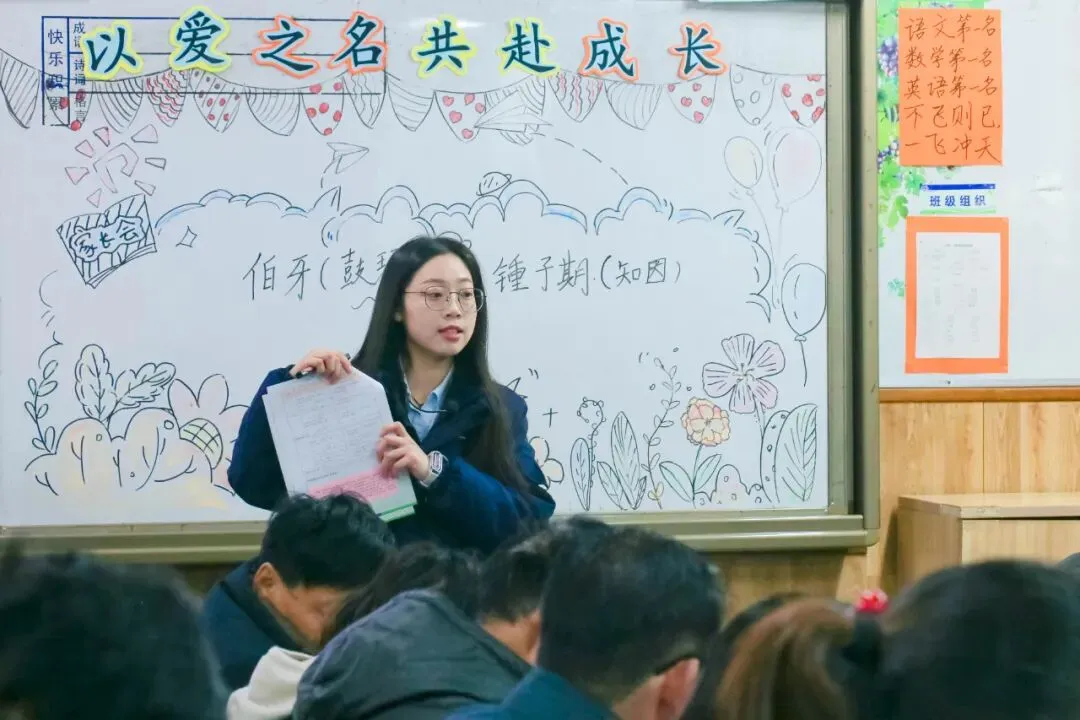 以爱之名 共赴成长
快乐
成语
家长会
伯牙(鼓
锺子期.(知因)
语文第一名
数学第一名
英语第一名
不飞则已,
一飞冲天
班级组织